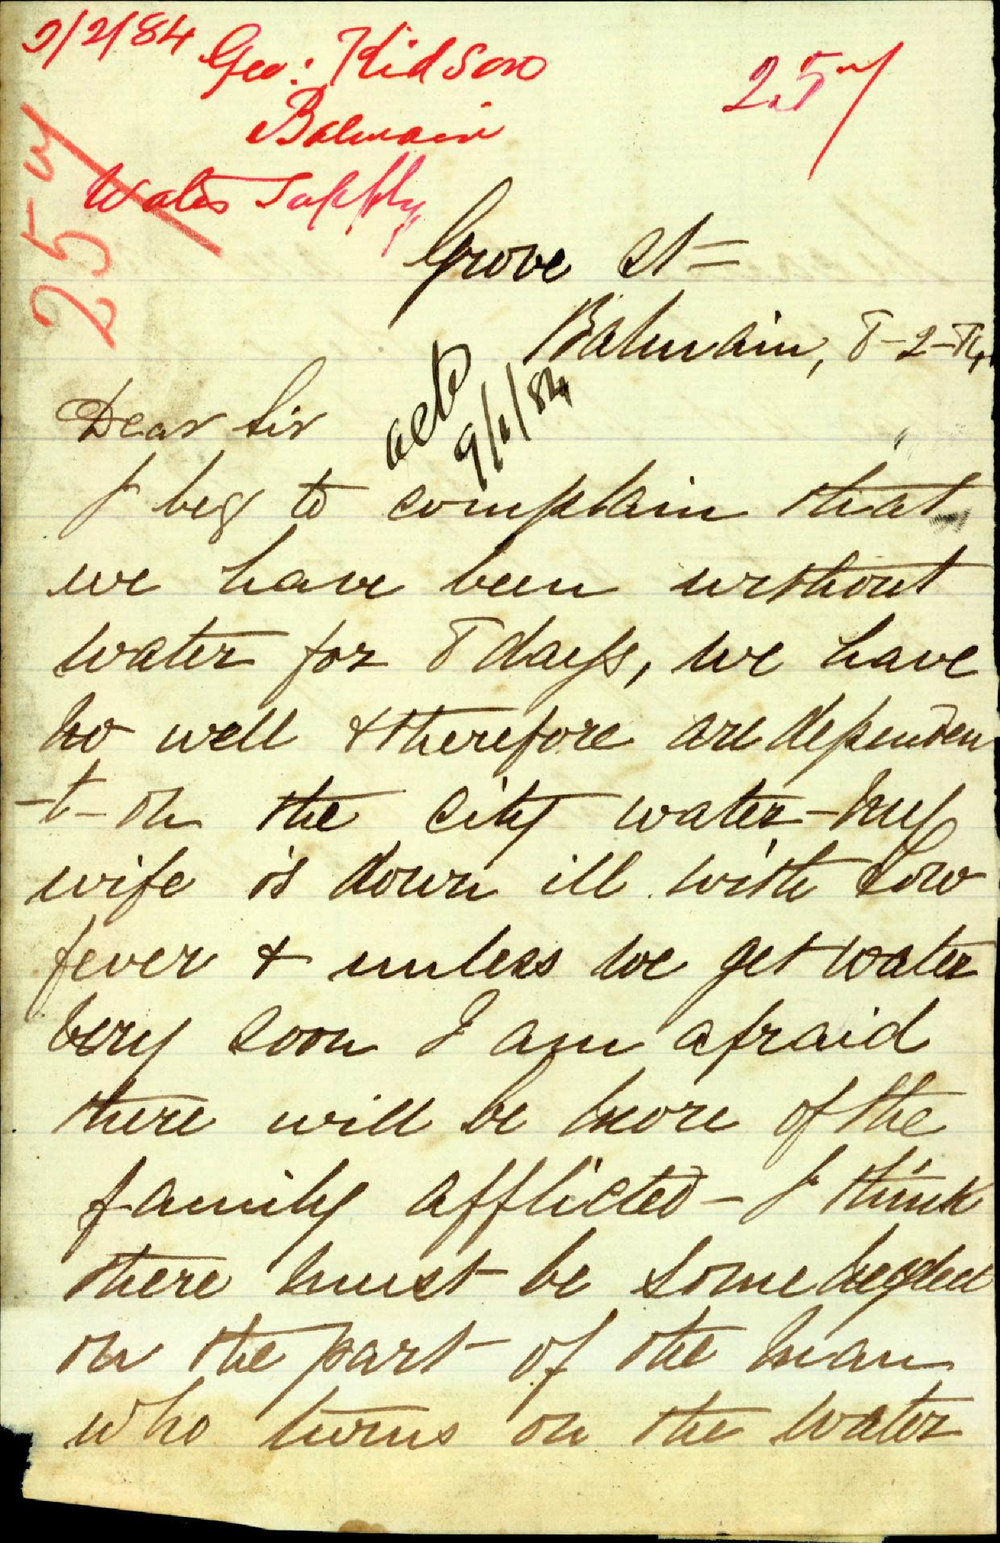 9/2/84
Geo: Kidson
Balmain
Water Supply
257
257
Grove St=
Balmain, 8-2-84
ack
9/2/84
Dear Sir
I beg to complain that
we have been without
water for 8 days, we have
no well & therefore are dependen
-t- on the city water - my
wife is down ill with Low
fever & unless we get water
very soon I am afraid
there will be more of the
family afflicted - I think
there must be some neglect
on the part of the man
who turns on the water